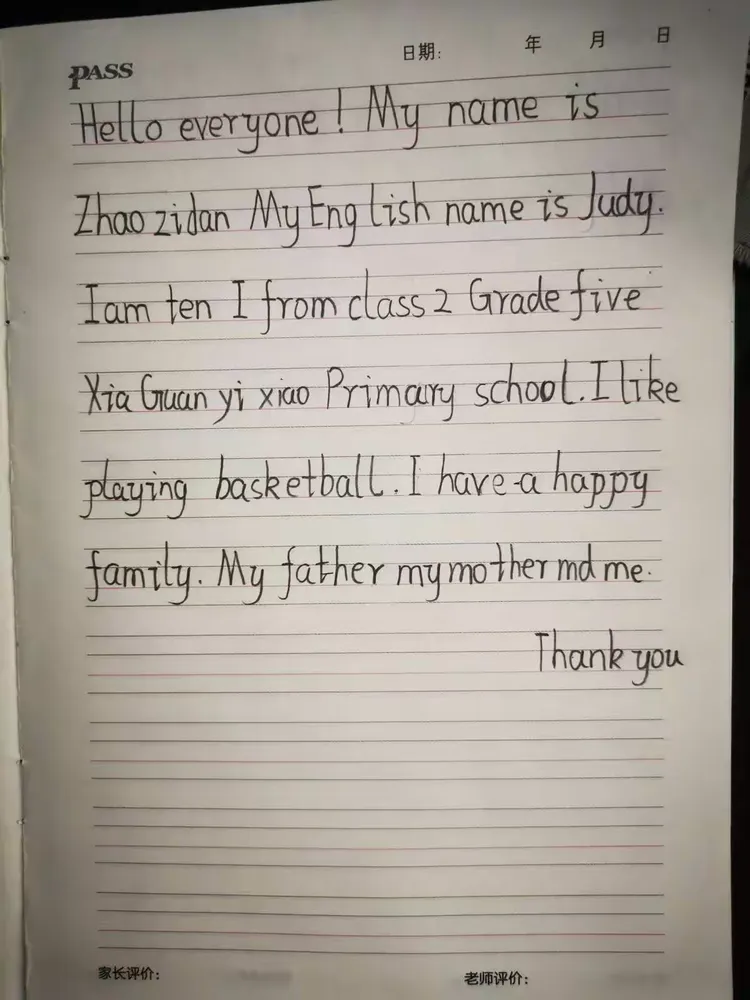 PASS
日期: 年 月 日
Hello everyone! My name is
Zhao zidan My English name is Judy.
I am ten I from class 2 Grade five
Xia Guan yi xiao Primary school. I like
playing basketball. I have a happy
family. My father my mother md me.
Thank you
家长评价: 老师评价: